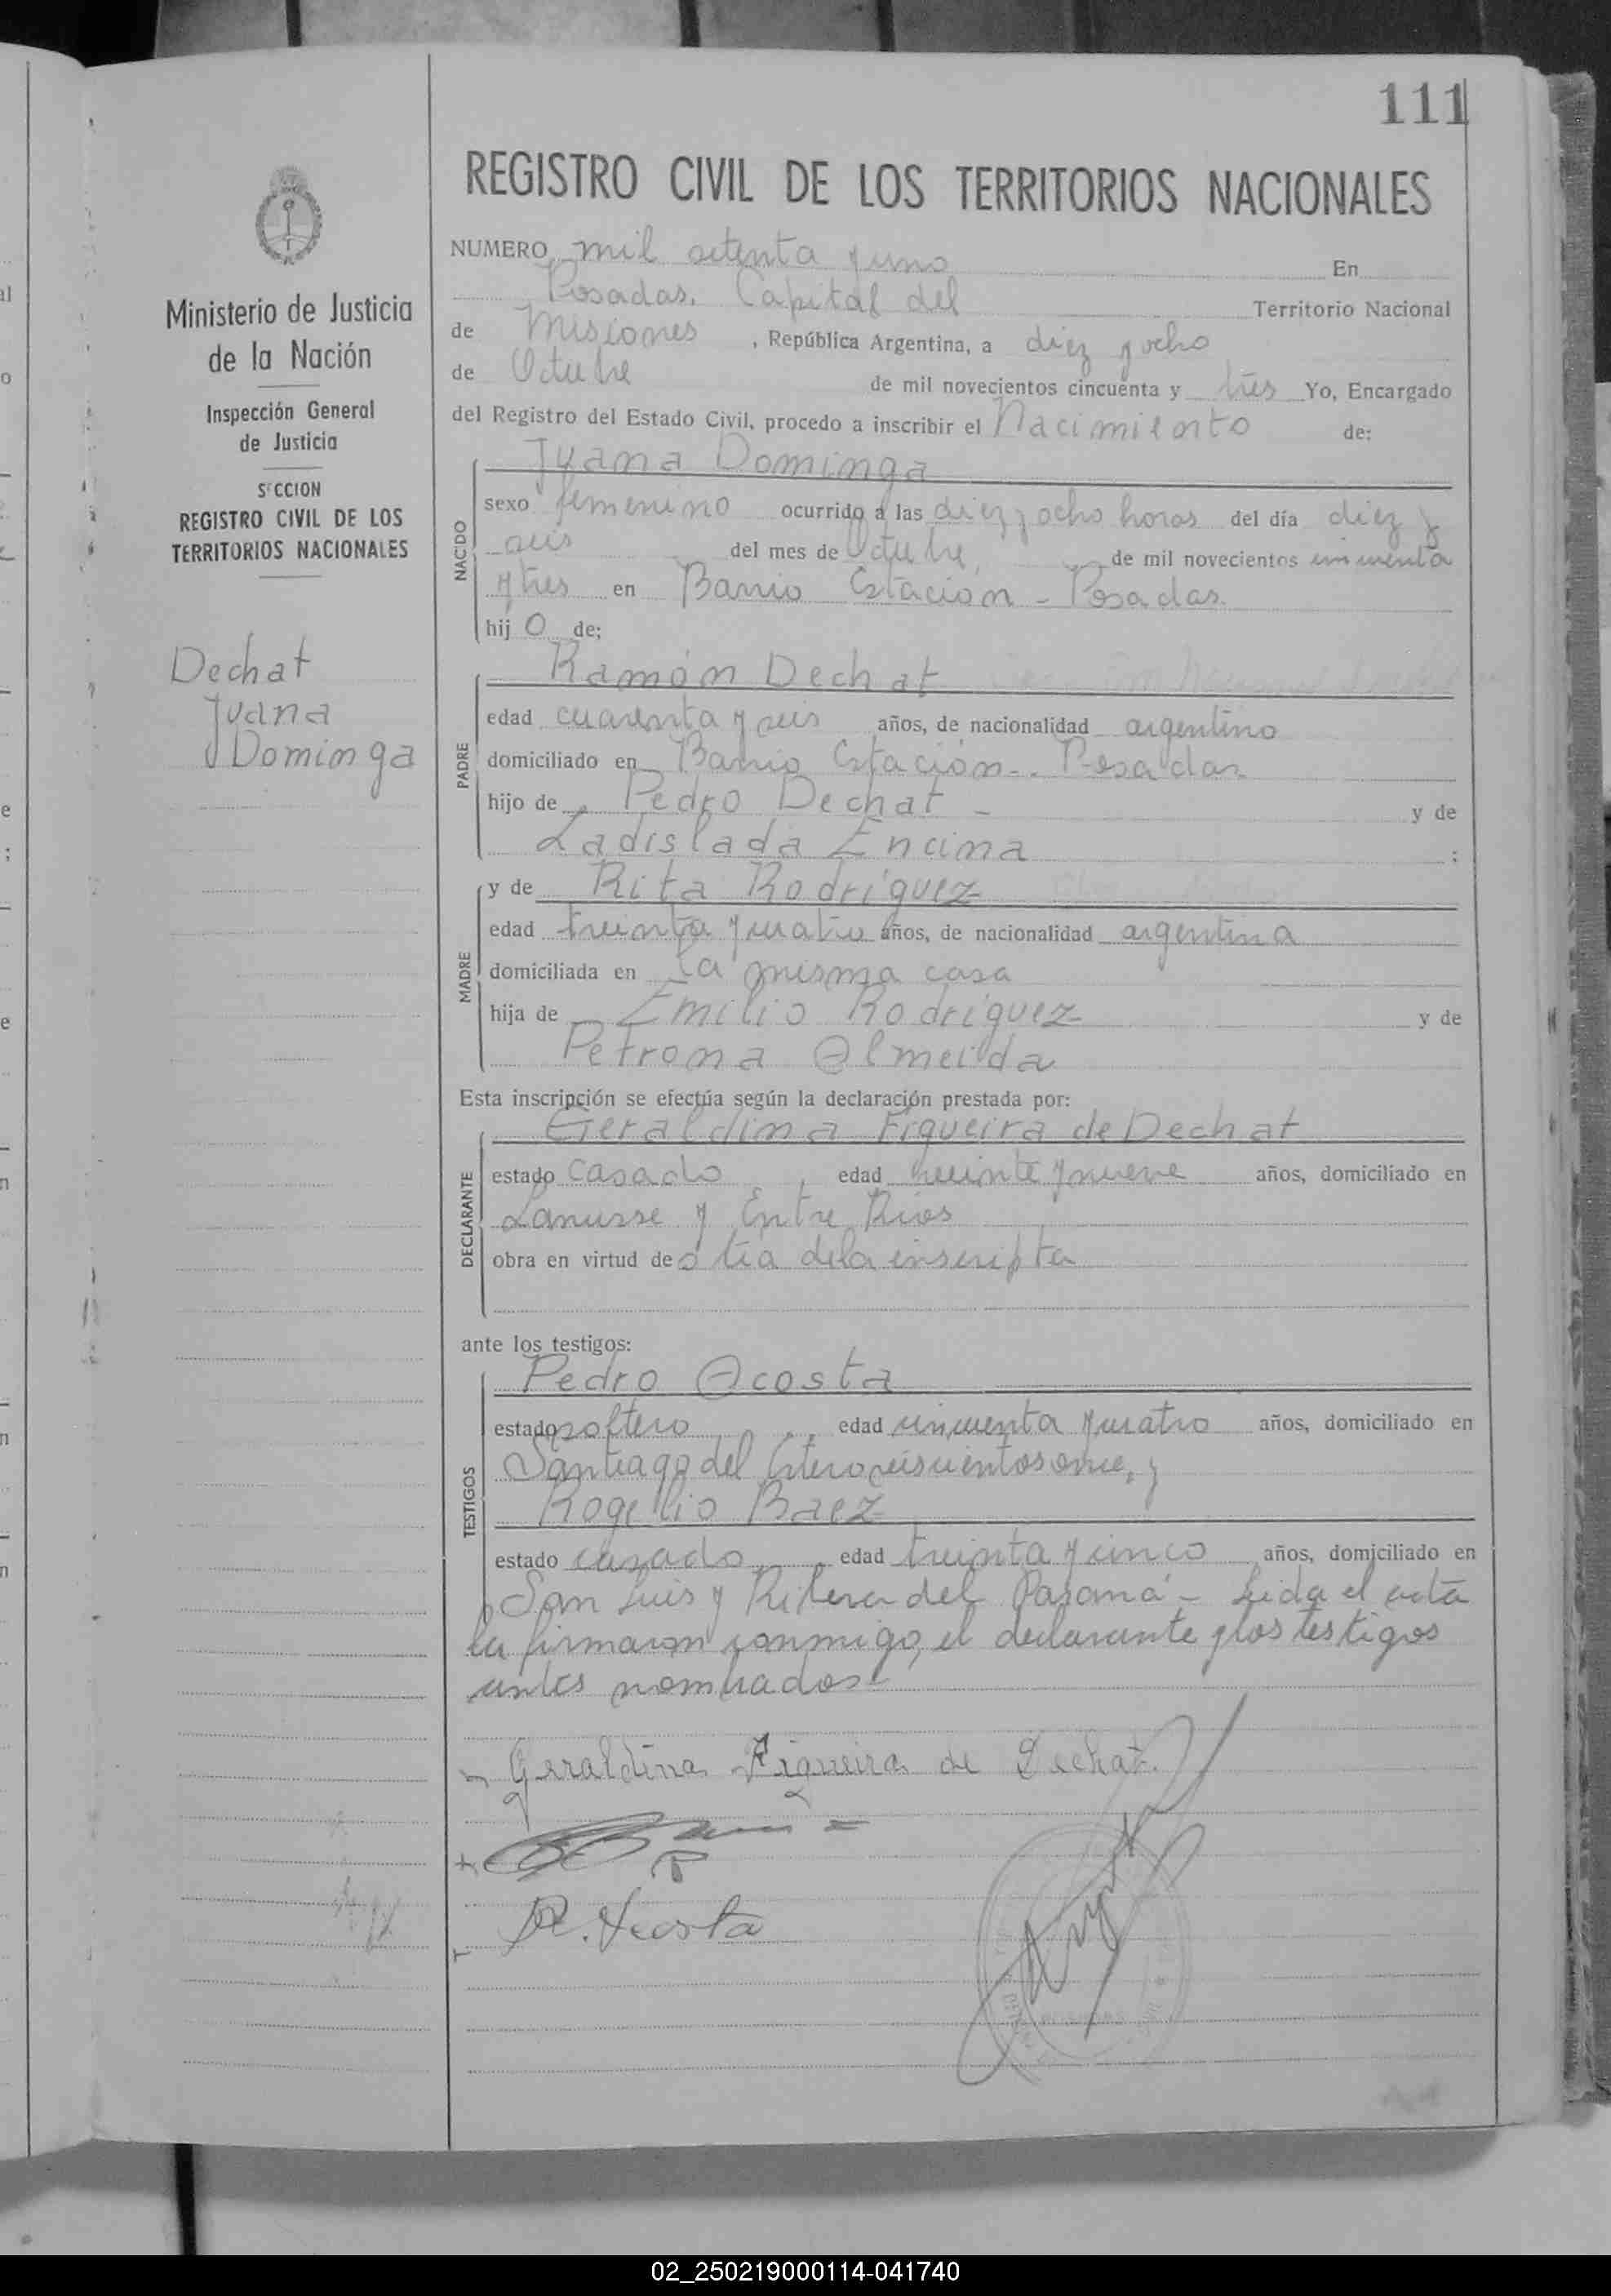 111
REGISTRO CIVIL DE LOS TERRITORIOS NACIONALES
NUMERO mil setenta y uno En
Posadas. Capital del Territorio Nacional
de Misiones, República Argentina, a diez y ocho
de Octubre de mil novecientos cincuenta y tres Yo, Encargado
del Registro del Estado Civil, procedo a inscribir el Nacimiento de:
Ministerio de Justicia
de la Nación
Inspección General
de Justicia
SECCION
REGISTRO CIVIL DE LOS
TERRITORIOS NACIONALES
Dechat
Juana
Dominga
NACIDO
Juana Dominga
sexo femenino ocurrido a las diez y ocho horas del día diez y
seis del mes de Octubre, de mil novecientos cincuenta
y tres en Barrio Estación - Posadas
hij o de;
PADRE
Ramón Dechat
edad cuarenta y seis años, de nacionalidad argentino
domiciliado en Barrio Estación - Posadas
hijo de Pedro Dechat - y de
Ladislada Encina ;
MADRE
y de Rita Rodríguez
edad treinta y cuatro años, de nacionalidad argentina
domiciliada en la misma casa
hija de Emilio Rodríguez y de
Petrona Almeida
Esta inscripción se efectúa según la declaración prestada por:
DECLARANTE
Geraldina Figueira de Dechat
estado casado, edad veinte y nueve años, domiciliado en
Lanusse y Entre Rios
obra en virtud de o tia de la inscripta
ante los testigos:
TESTIGOS
Pedro Acosta
estado soltero, edad cincuenta y cuatro años, domiciliado en
Santiago del Estero seiscientos once, y
Rogelio Baez
estado casado, edad treinta y cinco años, domiciliado en
San Luis y Ribera del Paraná - Leida el acta
la firmaron conmigo, el declarante y los testigos
antes nombrados
Geraldina Figueira de Dechat.
P. Acosta
02_250219000114-041740